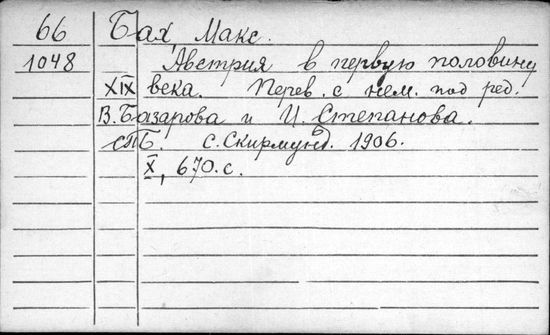 66 Бах, Макс.
1048 Австрия в первую половину
XIX века. Перев. с нем. под ред.
В. Базарова и И. Степанова.
СПБ. С. Скирмунд. 1906.
X, 670. с.